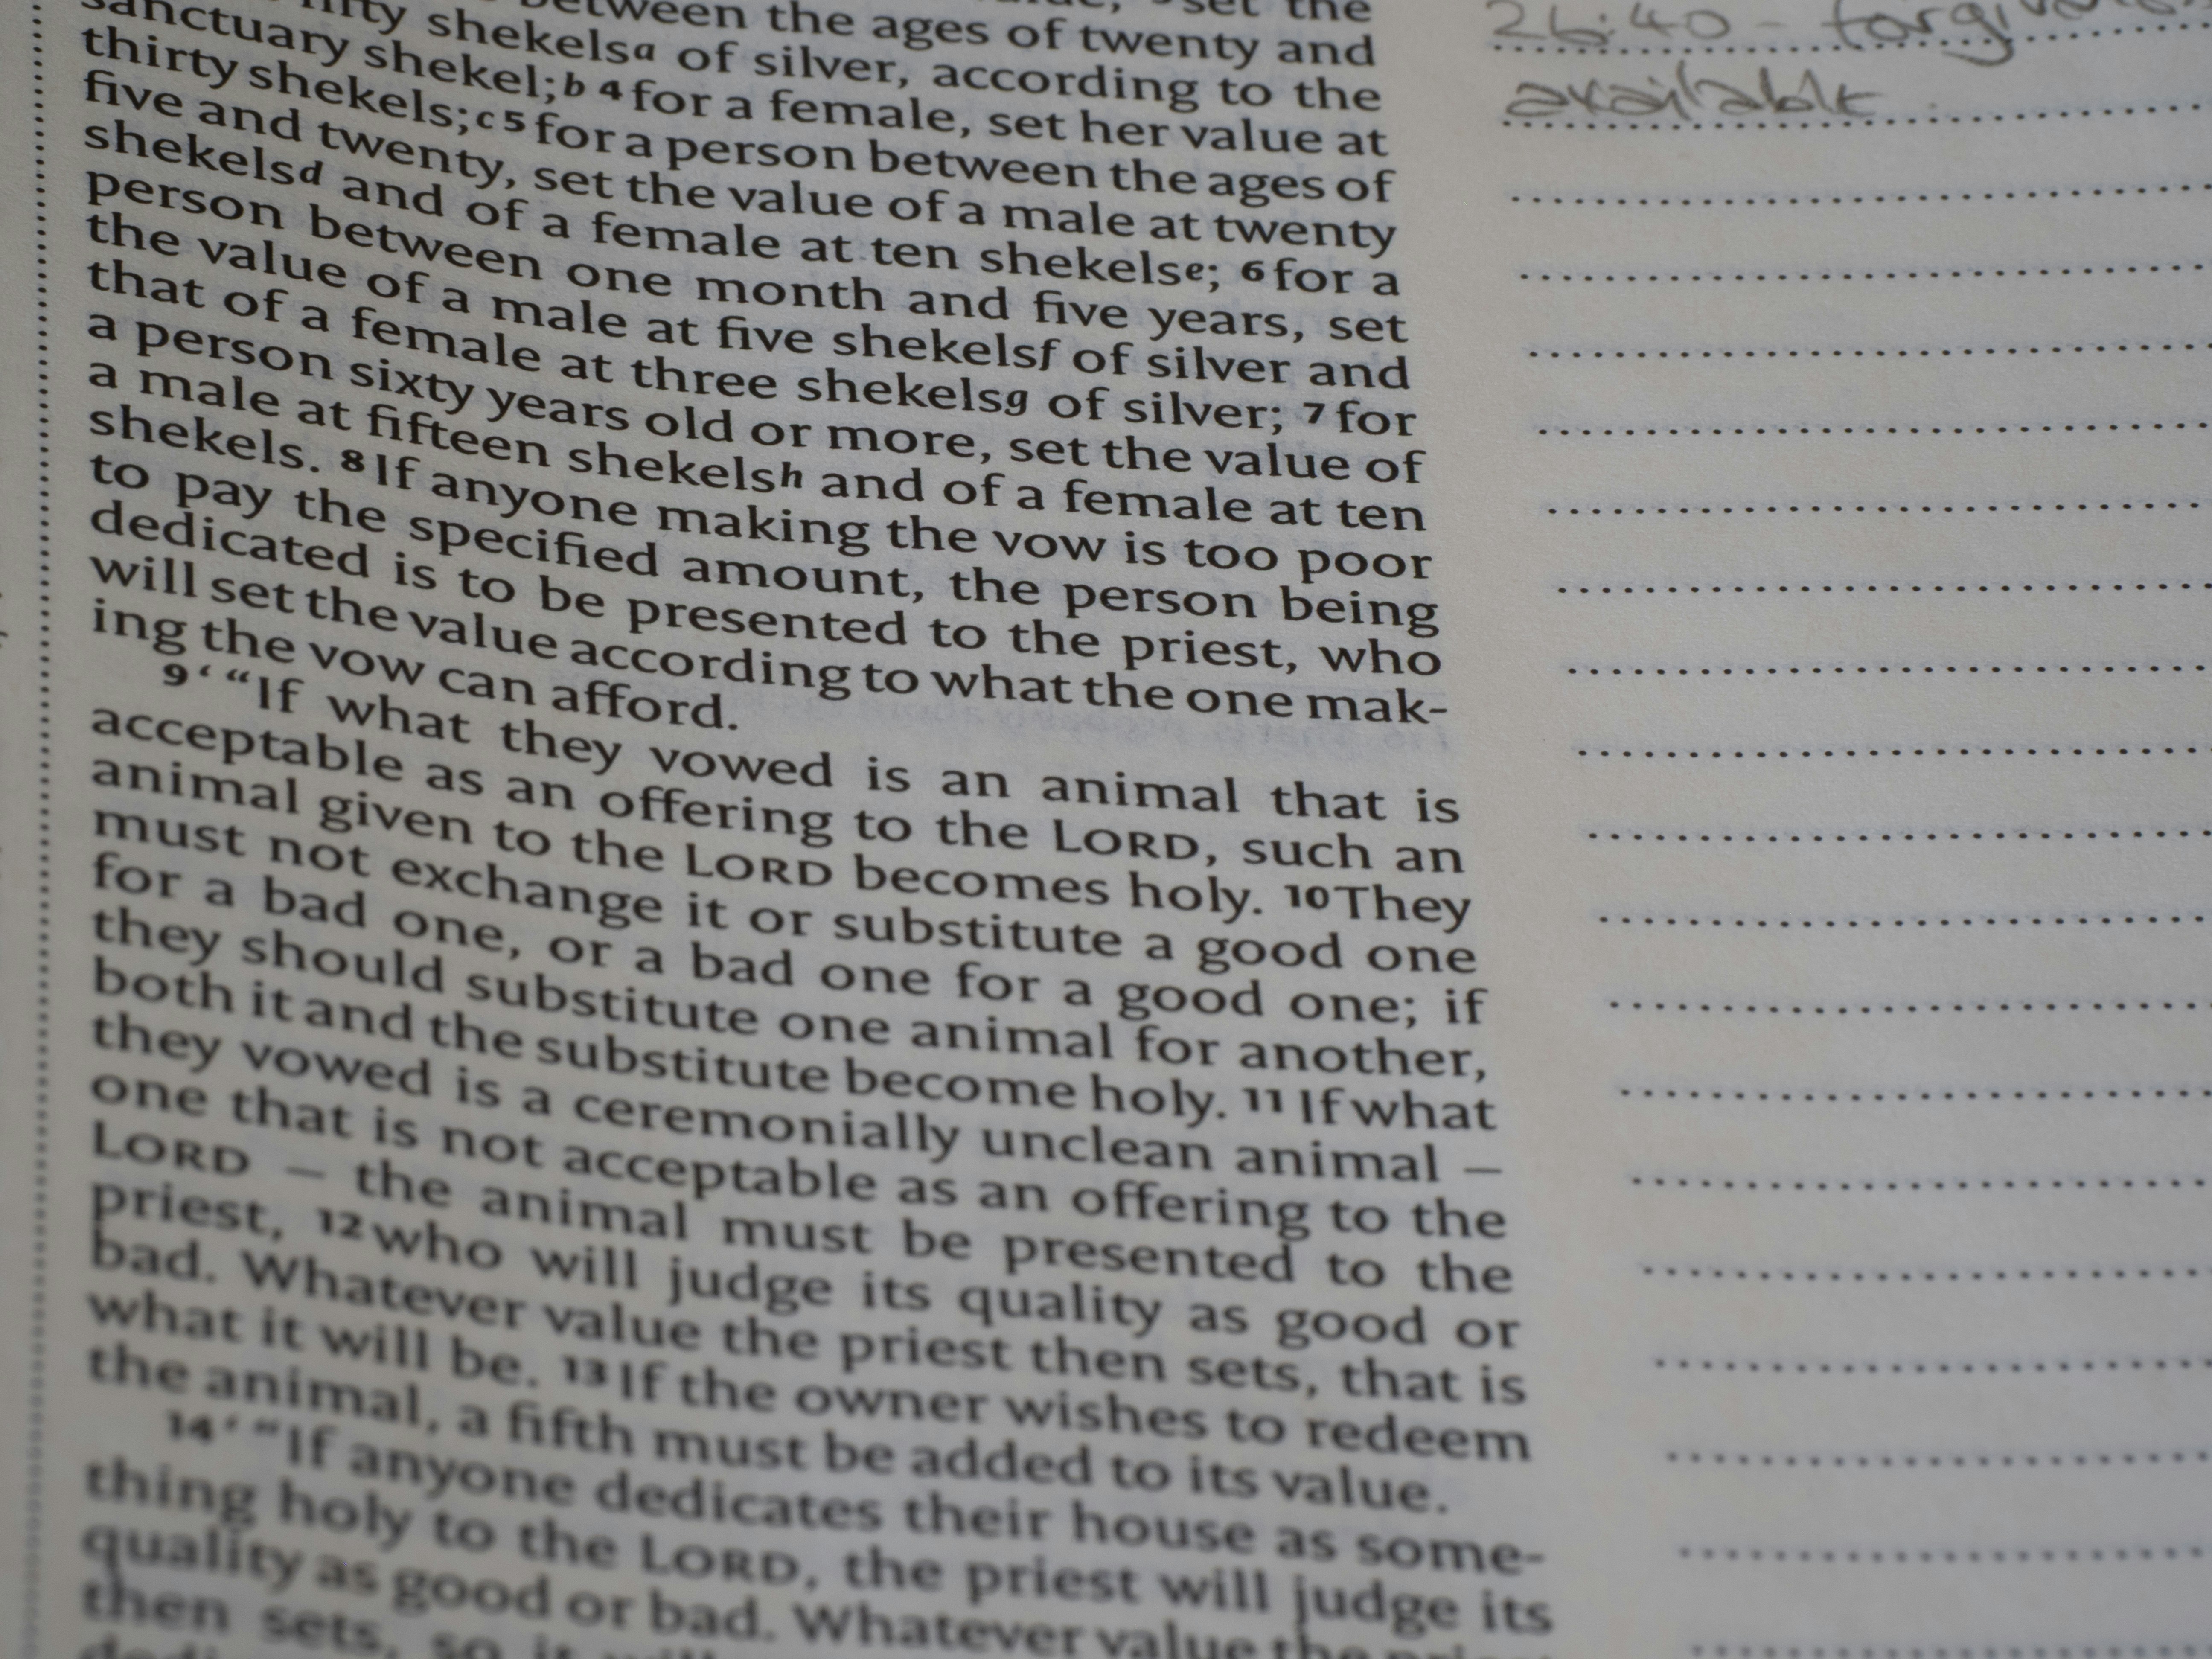 set the
between the ages of twenty and
fifty shekelsa of silver, according to the
sanctuary shekel;b 4 for a female, set her value at
thirty shekels;c 5 for a person between the ages of
five and twenty, set the value of a male at twenty
shekelsd and of a female at ten shekelse; 6 for a
person between one month and five years, set
the value of a male at five shekelsf of silver and
that of a female at three shekelsg of silver; 7 for
a person sixty years old or more, set the value of
a male at fifteen shekelsh and of a female at ten
shekels. 8 If anyone making the vow is too poor
to pay the specified amount, the person being
dedicated is to be presented to the priest, who
will set the value according to what the one mak-
ing the vow can afford.
9 ‘ “If what they vowed is an animal that is
acceptable as an offering to the LORD, such an
animal given to the LORD becomes holy. 10 They
must not exchange it or substitute a good one
for a bad one, or a bad one for a good one; if
they should substitute one animal for another,
both it and the substitute become holy. 11 If what
they vowed is a ceremonially unclean animal –
one that is not acceptable as an offering to the
LORD – the animal must be presented to the
priest, 12 who will judge its quality as good or
bad. Whatever value the priest then sets, that is
what it will be. 13 If the owner wishes to redeem
the animal, a fifth must be added to its value.
14 ‘ “If anyone dedicates their house as some-
thing holy to the LORD, the priest will judge its
quality as good or bad. Whatever value the
then sets, so it
26:40 -
available